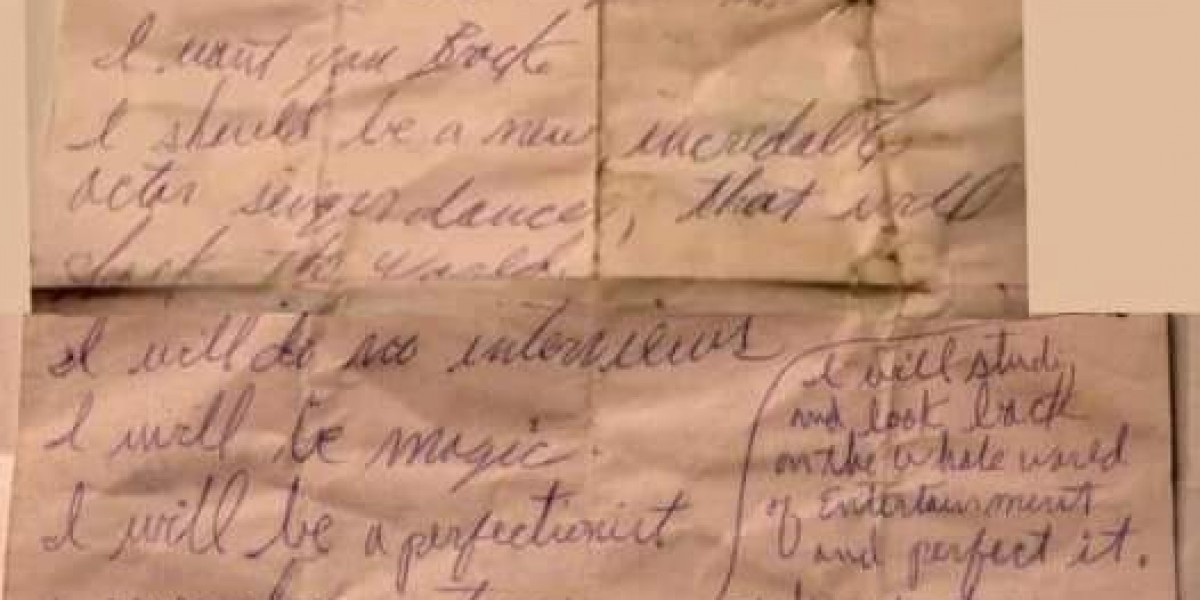 I want you Back.
I should be a new incredable
actor singer dancer, that will
shock the world.
I will do no interviews
I will be magic.
I will be a perfectionist
I will study
and look back
on the whole world
of Entertainment
and perfect it.